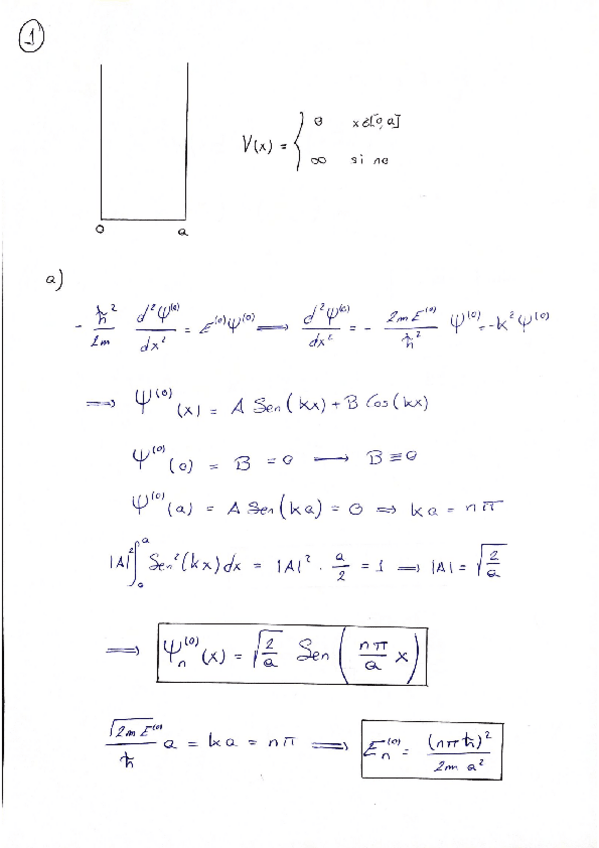 1
V(x) = { 0 x∈[0,a]
∞ si no
0 a
a)
- ħ²/2m d²Ψ⁽⁰⁾/dx² = E⁽⁰⁾Ψ⁽⁰⁾ ⟹ d²Ψ⁽⁰⁾/dx² = - 2mE⁽⁰⁾/ħ² Ψ⁽⁰⁾ = -k²Ψ⁽⁰⁾
⟹ Ψ⁽⁰⁾(x) = A Sen(kx) + B Cos(kx)
Ψ⁽⁰⁾(0) = B = 0 ⟶ B ≡ 0
Ψ⁽⁰⁾(a) = A Sen(ka) = 0 ⟹ ka = nπ
|A|² ∫₀ᵃ Sen²(kx)dx = |A|² · a/2 = 1 ⟹ |A| = √(2/a)
⟹ Ψₙ⁽⁰⁾(x) = √(2/a) Sen(nπ/a x)
√(2mE⁽⁰⁾)/ħ a = ka = nπ ⟹ Eₙ⁽⁰⁾ = (nπħ)²/2m a²